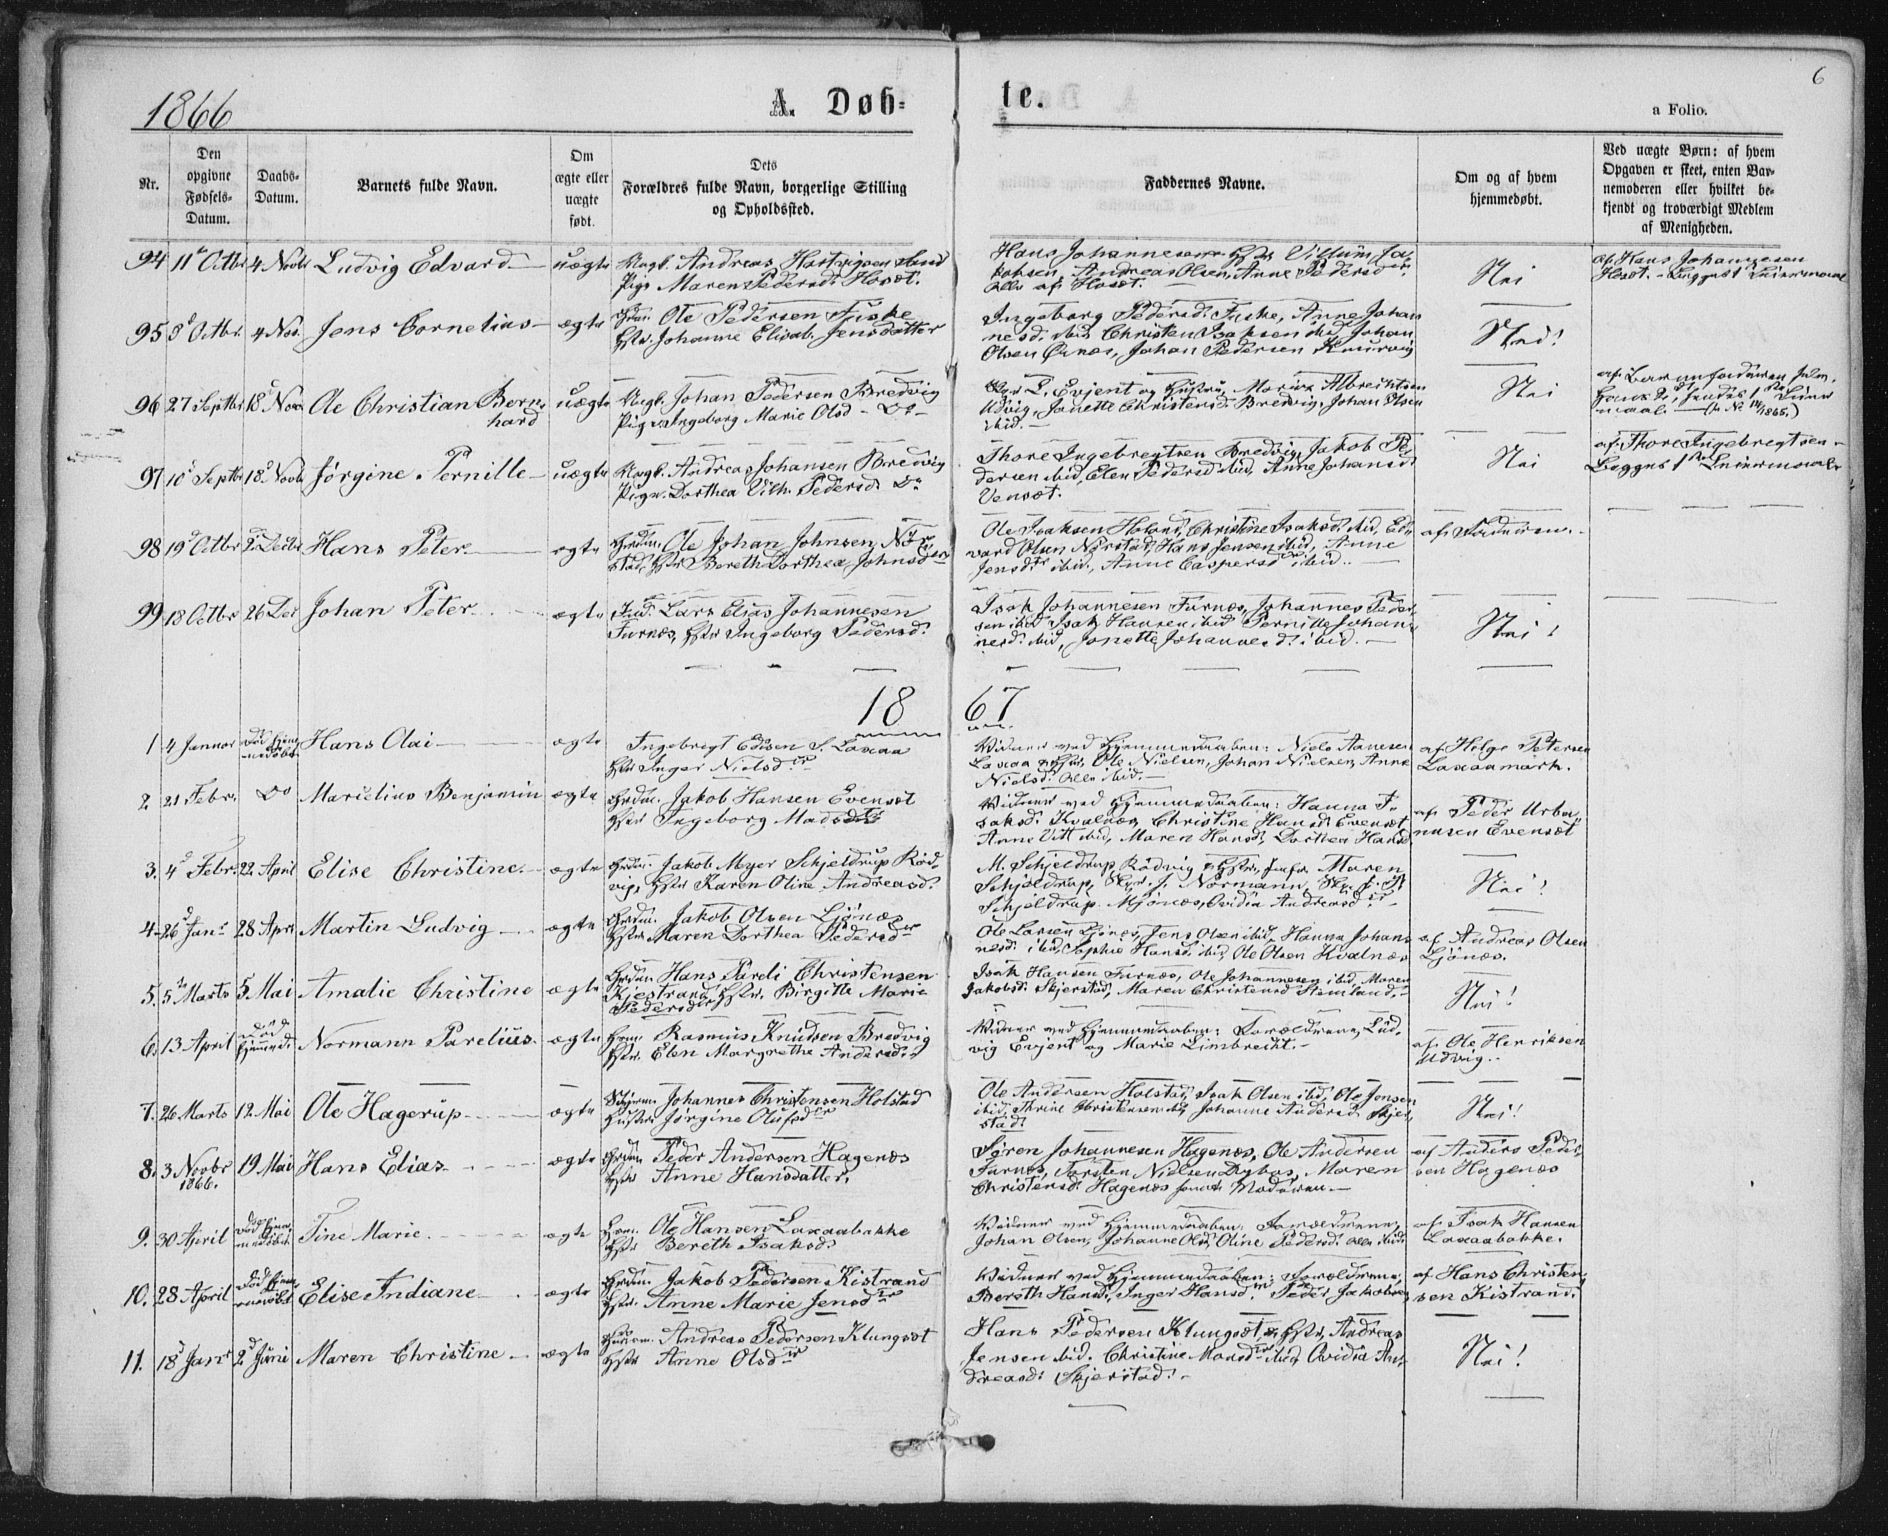 1866 A. Døb= te. 6
a Folio.
Nr. Den opgivne Fødsels-Datum. Daabs-Datum. Barnets fulde Navn. Om ægte eller uægte født. Dets Forældres fulde Navn, borgerlige Stilling og Opholdssted. Faddernes Navne. Om og af hvem hjemmedøbt. Ved uægte Børn: af hvem Opgaven er skeet, enten Barnemoderen eller hvilket bekjendt og troværdigt Medlem af Menigheden.
94 11te Octbr 4 Novbr Ludvig Edvard uægte Ungk. Andreas
Pige Maren Pedersd. Hosæt.
Hans Johannesen
Andreas Olsen, Anne Pedersdtr
alle af Hosæt.
Nei
af Hans Johannesen
Hosæt. - Begges 1ste Leiermaal
95 8d Octbr. 4 Nov. Jens Cornelius ægte Ole Pedersen Fuske
Johanne Elisab. Jensdatter
Ingeborg Pedersd. Fuske, Anne Johan
nesd. ibid. Christen Isaksen ibid, Johan
Olsen Ernæs, Johan Pedersen
Nei!
96 27 Septbr 18d Nov Ole Christian Bern
hard
uægte Ungk. Johan Pedersen Bredvig
Pige Ingeborg Marie Olsd - Do -
L. Evjent og Hustru, Marie Albrechtsen
Udvig, Janette Christensd. Bredvig, Johan Olsen
ibid. -
Nei
af Barnefaderen
maal. (s. No 14/1865.)
97 10d Septbr 18d Novb Jørgine Pernille uægte Ungk. Andreas Johansen Bredvig
Pige Dorthea Vilh. Pedersd. Do
Thore Ingebregtsen Bredvig, Jakob Pe
dersen ibid, Elen Pedersd ibid, Anne Johansd.
Vensæt.
Nei
af Thore Ingebregtsen -
Begges 1ste Leiermaal
98 19d Octbr 2d Decbr Hans Peter ægte Ole Johan Johnsen Nør
stad, Bereth Dorthea Johnsdtr
Ole Isaksen Holand, Christine Isaksd. ibid, Ed
vard Olsen Nørstad, Hans Jensen ibid, Anne
Jensdtr ibid., Anne Caspersd ibid..
af Faderen.
99 18 Octbr 26 Dec Johan Peter ægte Ind. Lars Elias Johannesen
Furnæs, Ingeborg Pedersd.
Isak Johannesen Furnæs, Johannes Peder
sen ibid Isak Hansen ibid Pernille Johan
nesd. ibid, Jonette Johannesd. ibid. -
Nei!
18 67
1 4 Januar død hjem
medøbt Hans Olai ægte Ingebrigt Edisen S. Laxaa
Inger Nielsdtr
Vidner ved Hjemmedaaben: Niels Aanesen
Laxaa Ole Nielsen, Johan Nielsen, Anne
Nielsd. alle ibid. -
af Helge Petersen
Laxaamark.
2. 21 Febr. Do Marielius Benjamin ægte Jakob Hansen Evensæt
Ingeborg Madsdtr
Vidner ved Hjemmedaaben: Hanna I
saksd. Kvalnæs, Christine Hansd. Evensæt
Anne Vitt ibid, Maren Hansd, Dorthea Hansd.
af Peder Urba
nusen Evensæt
3. 4d Febr. 22. April Elise Christine ægte Jakob Meyer Schjeldrup Rød
vig, Karen Oline Andreasd.
M. Schjeldrup Rødvig Maren
Schjeldrup, Normann,
Schjeldrup Mjønæs, Ovidia Andreasdtr
Nei!
4 26d Janr 28 Apri Martin Ludvig ægte Jakob Olsen Ljønæs
Maren Dorthea Pedersdtr
Ole Larsen Ljønæs, Jens Olsen ibid, Hanna Johan
nesd. ibid, Sophie Hansd. ibid, Ole Olsen Kvalnæs
af Andreas Olsen
Ljønæs.
5. 5te Marts 5. Mai Amalie Christine ægte Hans Pareli Christensen
Kjestrand, Birgitte Marie
Pedersdtr
Isak Hansen Furnæs, Ole Johannesen ibid, Maren
Jakobsd. Skjerstad, Maren Christensd Stemland. -
Nei!
6. 13 April død
hjemmed. Normann Parelius. ægte Rasmus Knudsen Bredvig
Elen Margrethe Andersd. -
Vidner ved Hjemmedaaben: Forældrene, Lud
vig Evjent og Marie Limbrecht. -
af Ole Henriksen
Udvig. -
7. 26 Marts 12. Mai Ole Hagerup ægte Johannes Christensen Holstad
Hustru Jørgine Olufsdtr
Ole Andersen Holstad, Isak Olsen ibid, Ole Jensen
ibid, Christensen ibid, Johanne Andersd. Skjer
stad.
Nei!
8. 3 Novbr
1866. 19 Mai Hans Elias ægte Peder Andersen Hagenæs
Anne Hansdatter.
Søren Johannesen Hagenæs, Ole Andersen
Furnæs, Torsten Nielsen Maren
Christensd. Hagenæs samt Moderen. -
af Anders Peder
sen Hagenæs
9. 30 April død hjem
medøbt Tine Marie. ægte Ole Hansen Laxaabakke
Bereth Isaksd.
Vidner ved Hjemmedaaben: Forældrene,
Johan Olsen, Johanne Olsd, Oline Pedersd. alle ibid.
af Isak Hansen
Laxaabakke.
10. 28 April død hjem
medøbt Elise Indiane ægte Jakob Pedersen Kistrand
Anne Marie Jensdtr
Vidner ved Hjemmedaaben: Forældrene,
Bereth Hansd., Inger Hansdtr, Peder Jakobsen
af Hans Christen
sen Kistrand.
11. 18d Janr 2d Juni Maren Christine ægte Andreas Pedersen Klungsæt
Anne Olsdtr
Hans Pedersen Klungsæt, Andreas
Jensen ibid. Christine Monsdtr ibid, Ovidia An
dreasd: Skjerstad. -
Nei!